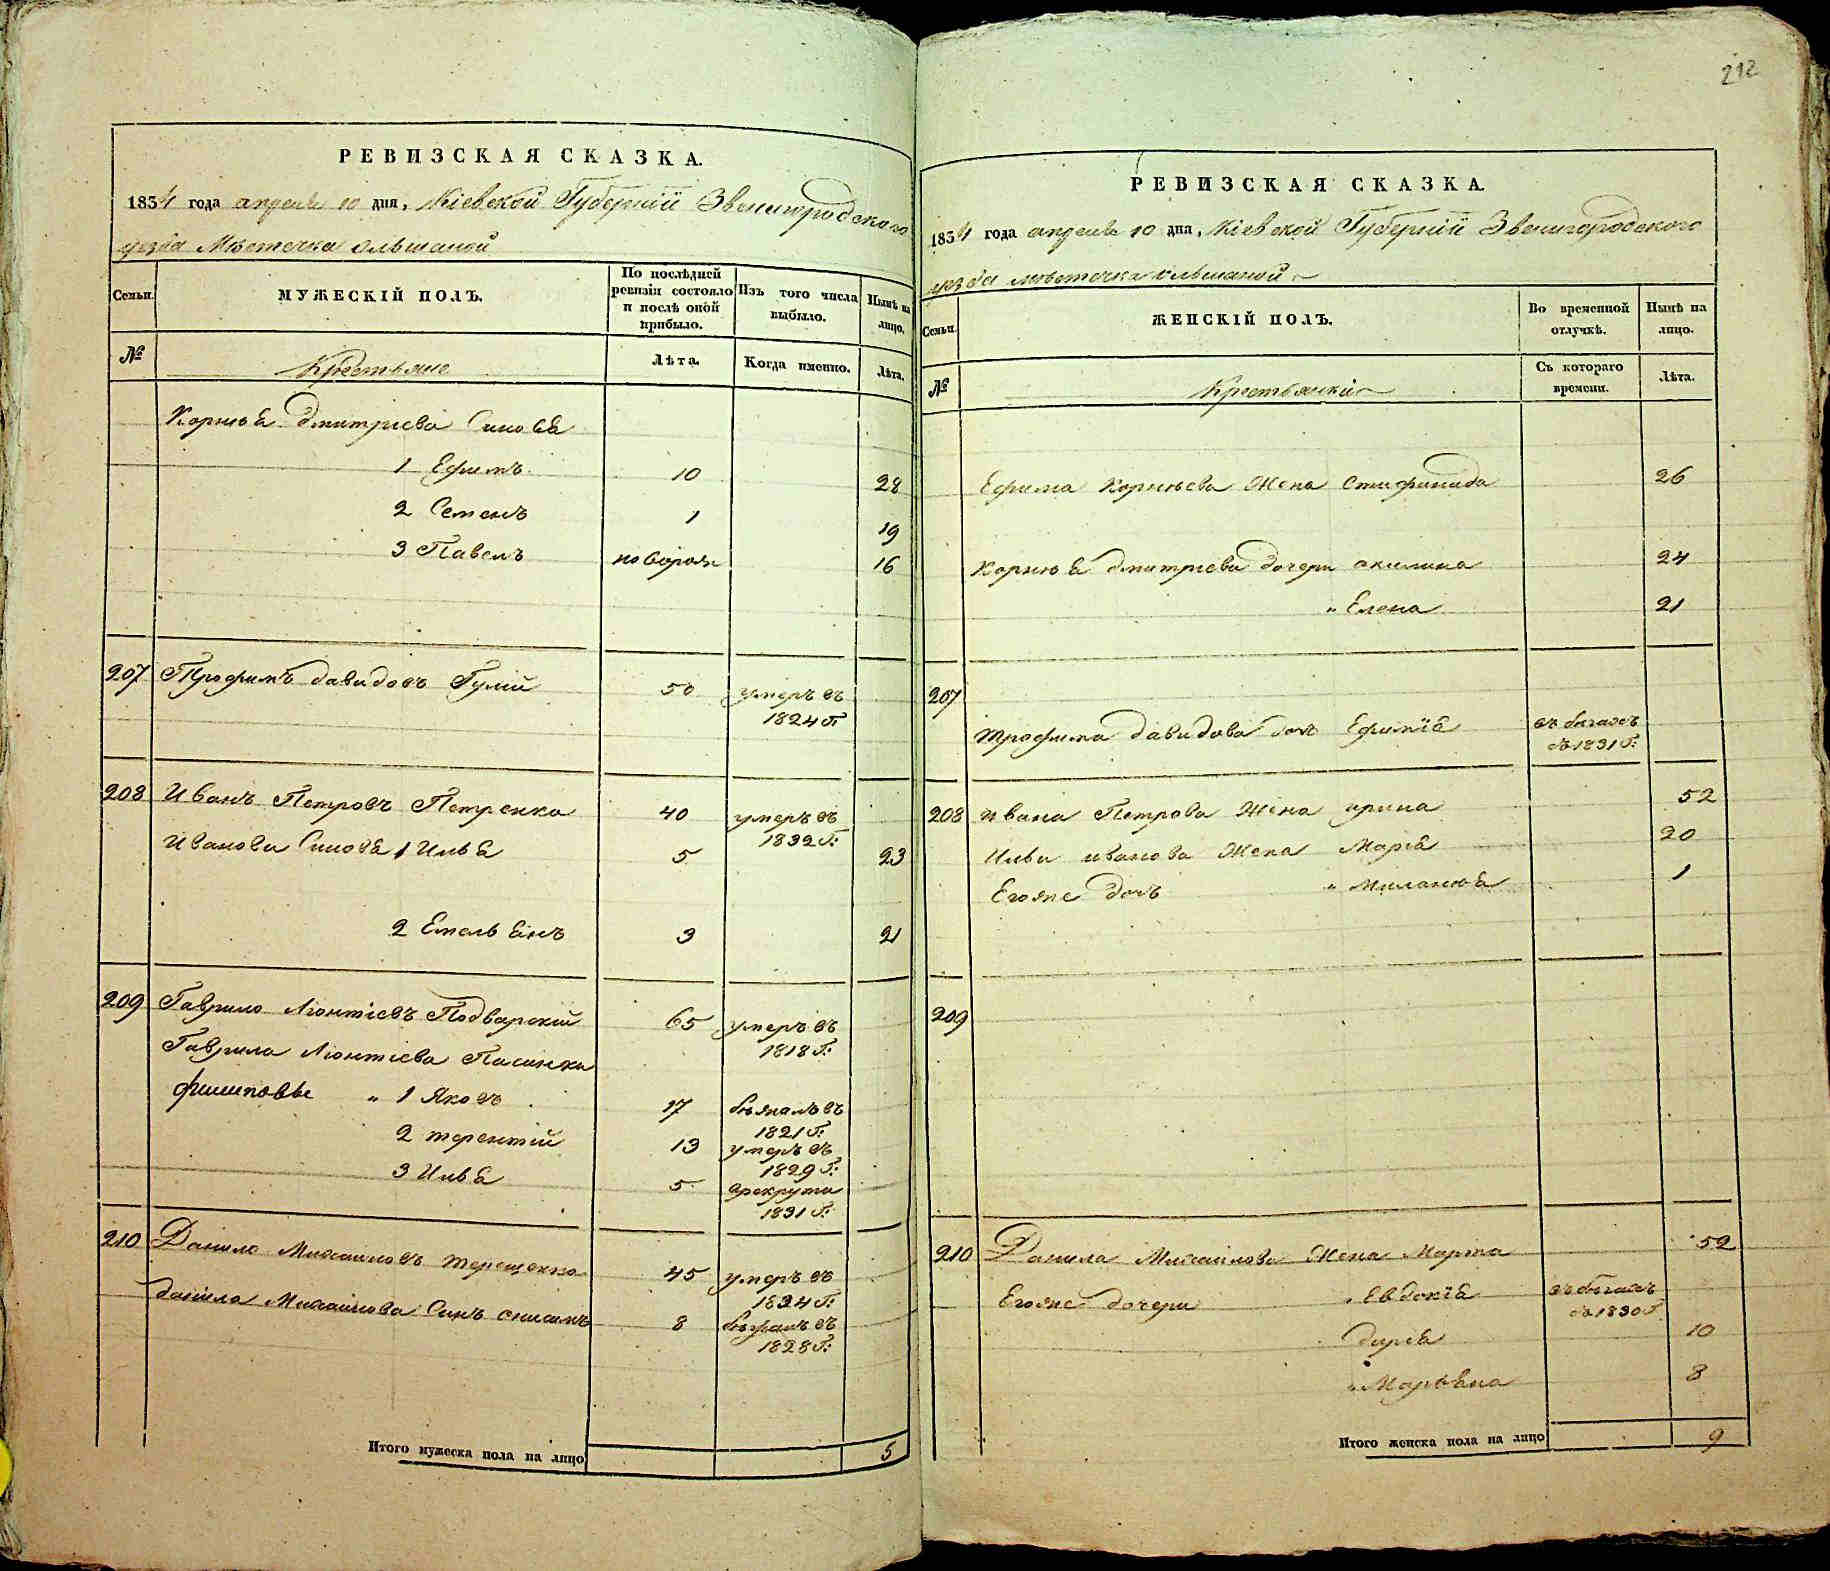 212
РЕВИЗСКАЯ СКАЗКА.
1834 года апреля 10 дня, Кіевской Губерніи Звенигородского
уезда Местечка Ольшаной
Семьи.
МУЖЕСКІЙ ПОЛЪ.
По послѣдней ревизіи состояло и послѣ оной прибыло.
Изъ того числа выбыло.
Нынѣ на лицо.
№
Крестьяне
Лѣта.
Когда именно.
Лѣта.
Корнѣя Дмитріева Синовя
1 Ефимъ 10 28
2 Семенъ 1 19
3 Павелъ новорож 16
207 Трофимъ давидовъ Гулій 50 умеръ въ
1824 Г:
208 Иванъ Петровъ Петренко 40 умеръ въ
1832 Г:
Иванови Синовя 1 Илья 5 23
2 Емельянъ 3 21
209 Гаврило Люнтіевъ Подварскій 65 умеръ въ
1818 Г:
Гаврила Люнтіева Пасинки
филиповы „ 1 Яковъ 17 бѣжалъ въ
1821 Г:
2 терентій 13 умеръ въ
1829 Г:
3 Илья 5 врекруты
1831 Г:
210 Данило Михаиловъ терещенко 45 умеръ въ
1834 Г:
данила Михаилова Синъ онисимъ 8 бѣжалъ въ
1828 Г:
Итого мужеска пола на лицо 5
РЕВИЗСКАЯ СКАЗКА.
1834 года апреля 10 дня, Кіевской Губерніи Звенигородского
уезда местечка ольшаной
Семьи.
ЖЕНСКІЙ ПОЛЪ.
Во временной отлучкѣ.
Нынѣ на лицо.
№
Съ котораго времени.
Лѣта.
Ефима Корнѣева Жена 26
Корнѣя дмитріева дочери акилина 24
„ Елена 21
207
трофима давидова дочъ Ефимія въ бѣгахъ
съ 1831 Г:
208 ивана Петрова Жена ирина 52
Ильи иванова Жена Марія 20
Егожъ дочъ „ Миланія 1
209
210 Данила Михаилова Жена Марта 52
Егожъ дочери „ Евдокія въ бѣгахъ
съ 1830 Г.
дарія 10
„ Маріяна 8
Итого женска пола на лицо 9